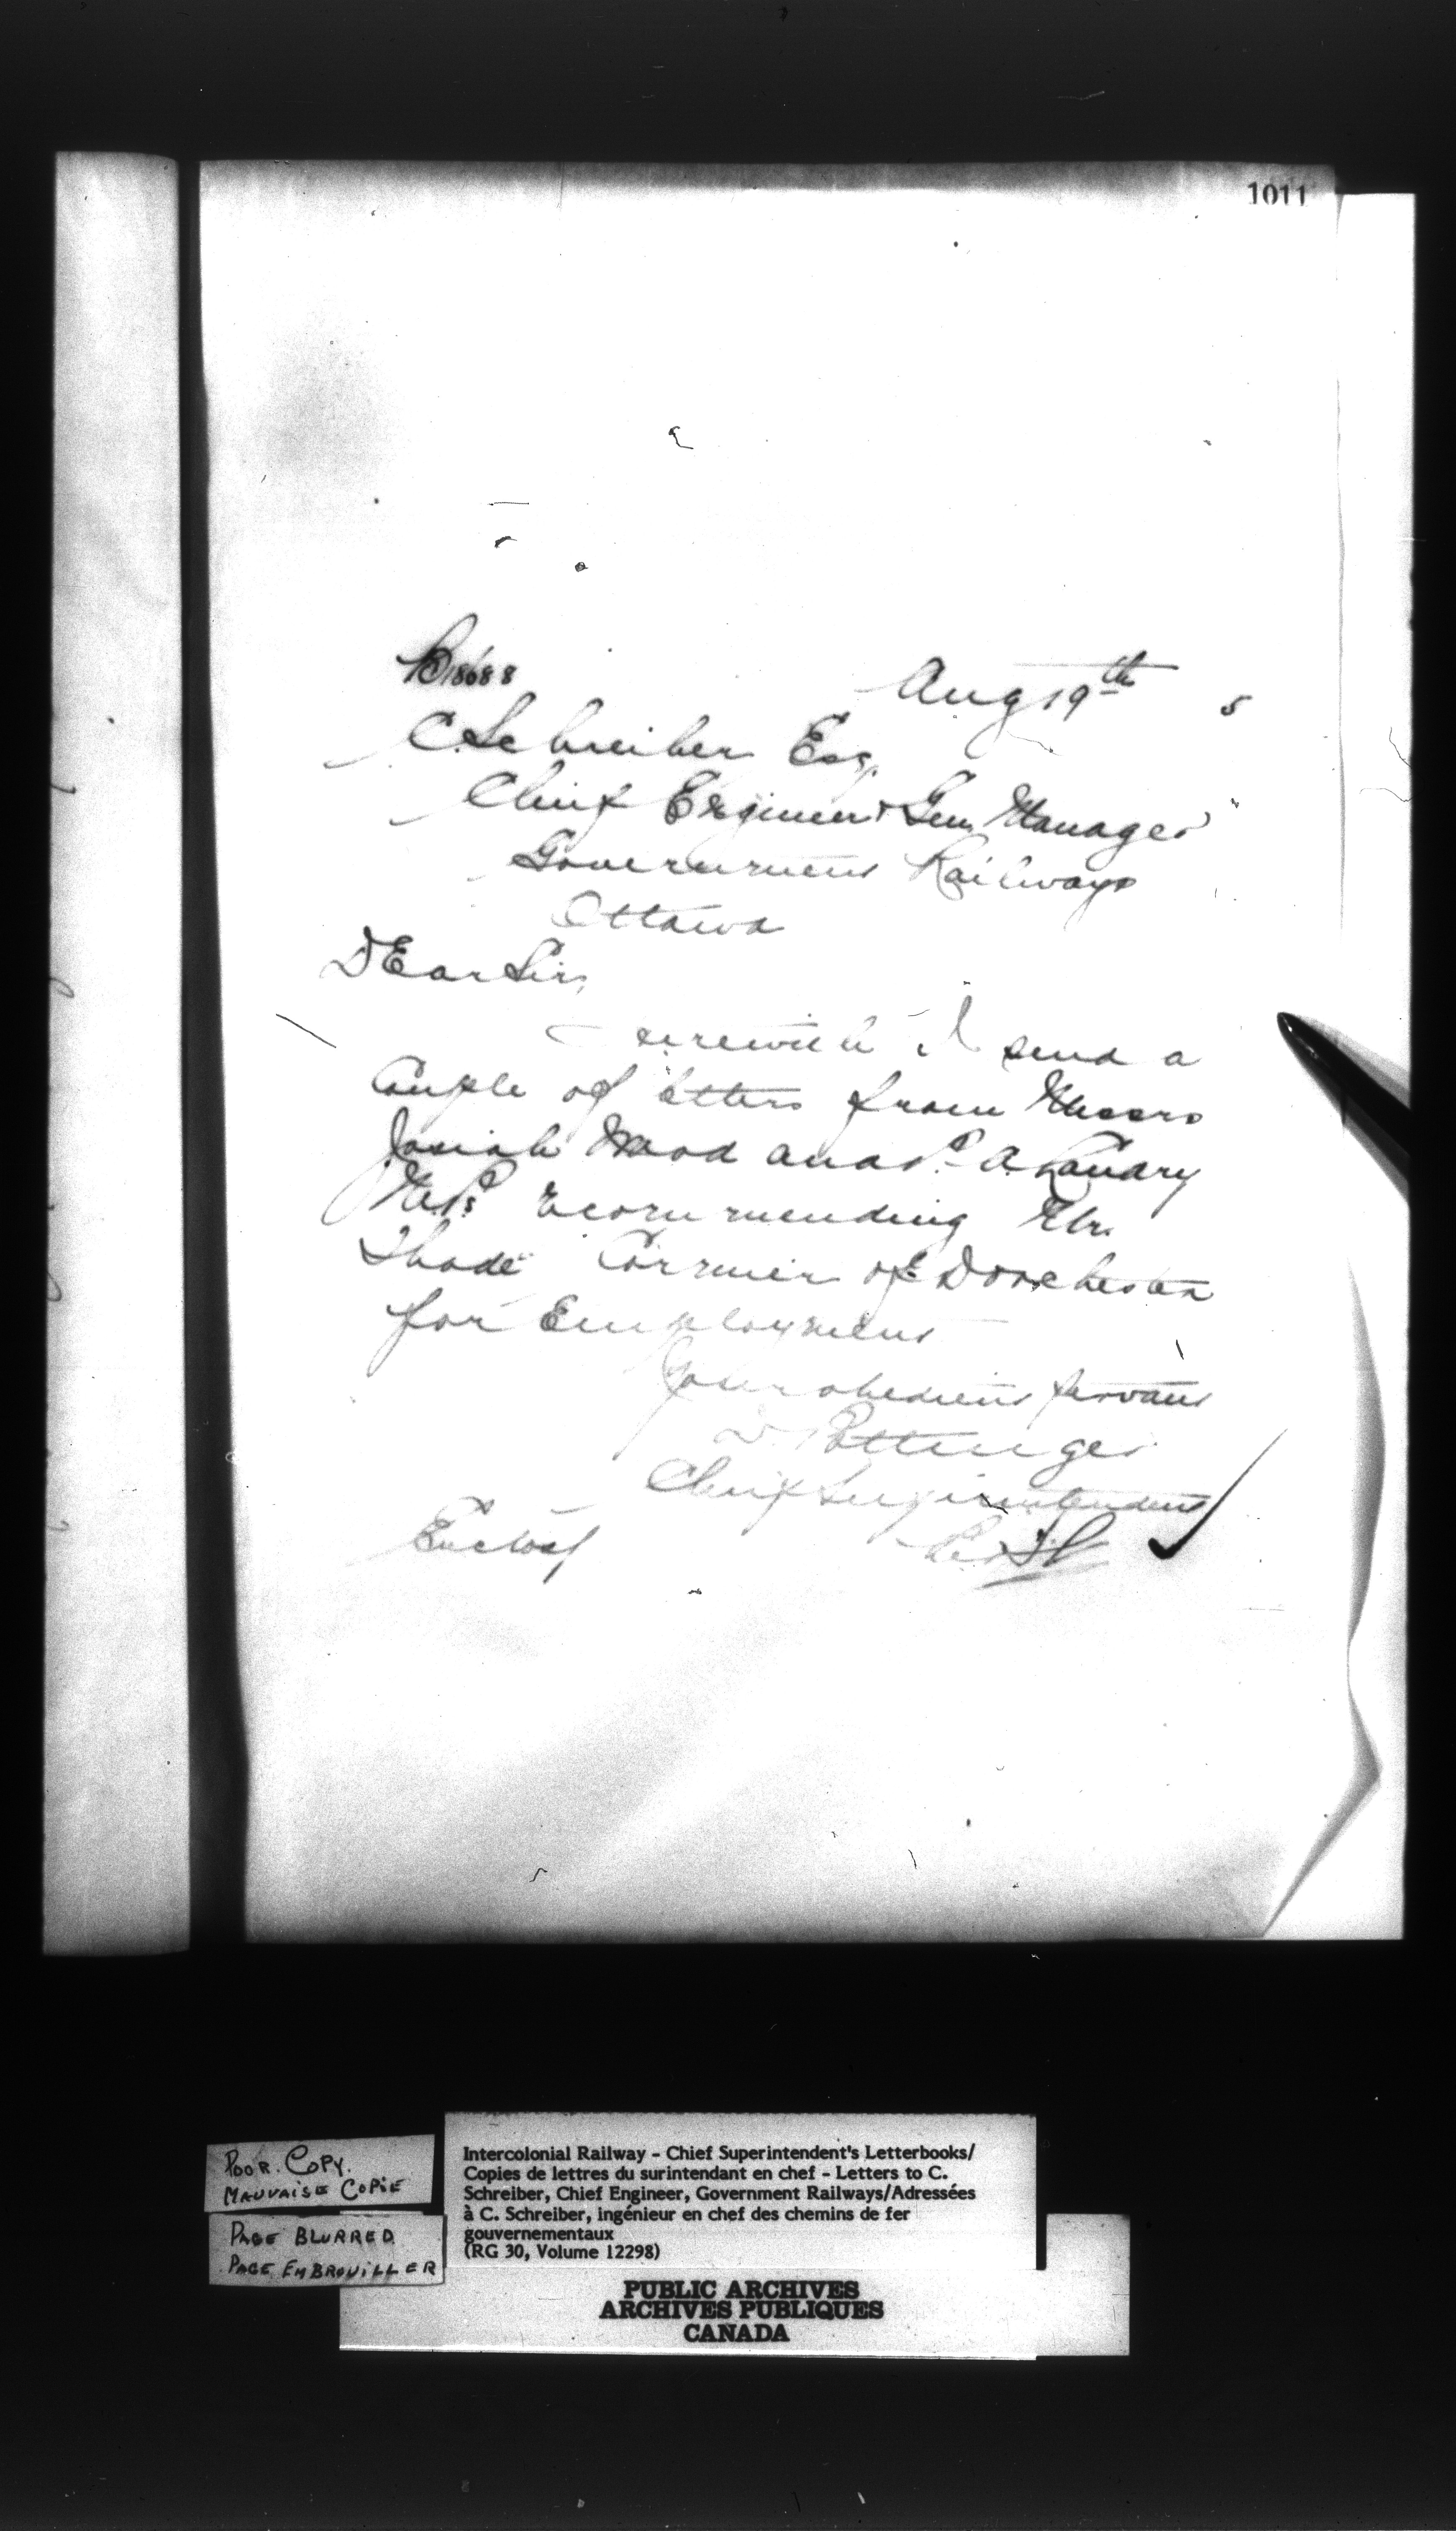 1011
18688
Aug 19th 5
C. Schreiber Esq.
Chief Engineer & Gen Manager
Government Railways
Ottawa
Dear Sir,
Herewith I send a
Couple of letters from Messrs
Josiah Wood and P. A. Landry
M.P's recommending Mr.
Thade Cormier of Dorchester
for Employment
Your obedient servant
D. Pottinger
Chief Superintendent
Enclos/
Per
POOR. COPY.
MAUVAISE COPIE
PAGE BLURRED
PAGE EMBROUILLER
Intercolonial Railway - Chief Superintendent's Letterbooks/
Copies de lettres du surintendant en chef - Letters to C.
Schreiber, Chief Engineer, Government Railways/Adressées
à C. Schreiber, ingénieur en chef des chemins de fer
gouvernementaux
(RG 30, Volume 12298)
PUBLIC ARCHIVES
ARCHIVES PUBLIQUES
CANADA